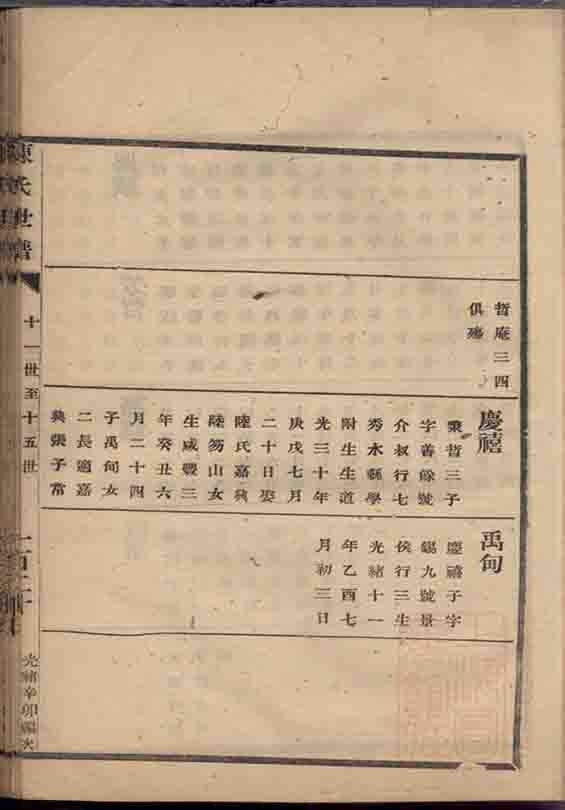 哲庵三四
俱殤
慶禧
秉哲三子
字善餘號
介叔行七
秀水縣學
附生生道
光三十年
庚戌七月
二十日娶
陸氏嘉興
陸笏山女
生咸豐三
年癸丑六
月二十四
子禹甸女
二長適嘉
興張子常
禹甸
慶禧子字
錫九號景
侯行三生
光緒十一
年乙酉七
月初三日
陳氏世譜
十一世至十五世
光緒辛卯編次